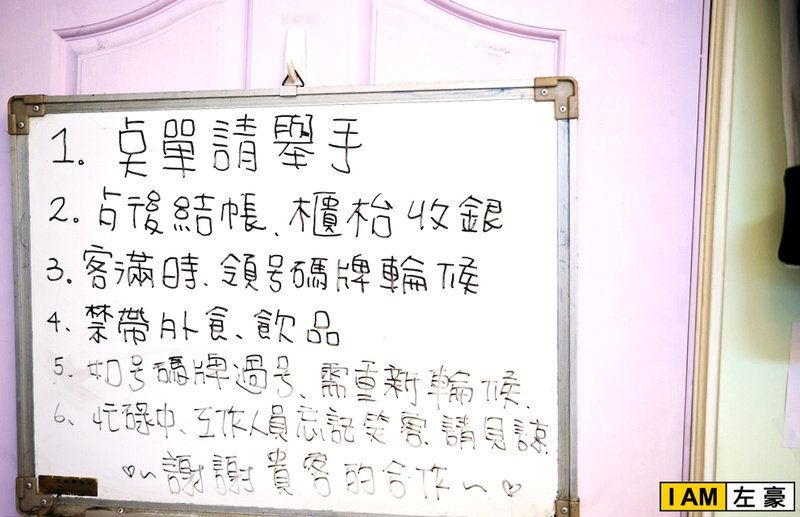 1. 点單請舉手
2. 占後結帳、櫃枱收銀
3. 客滿時、領号碼牌輪候
4. 禁帶外食、飲品
5. 如号碼牌過号、需重新輪候、
6、忙碌中、工作人員忘記笑容、請見諒
♡~謝謝貴客的合作~♡
I AM 左豪